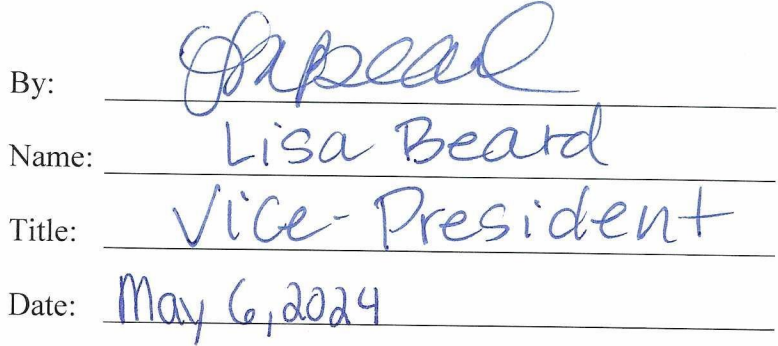 By:
Name: Lisa Beard
Title: Vice-President
Date: May 6, 2024